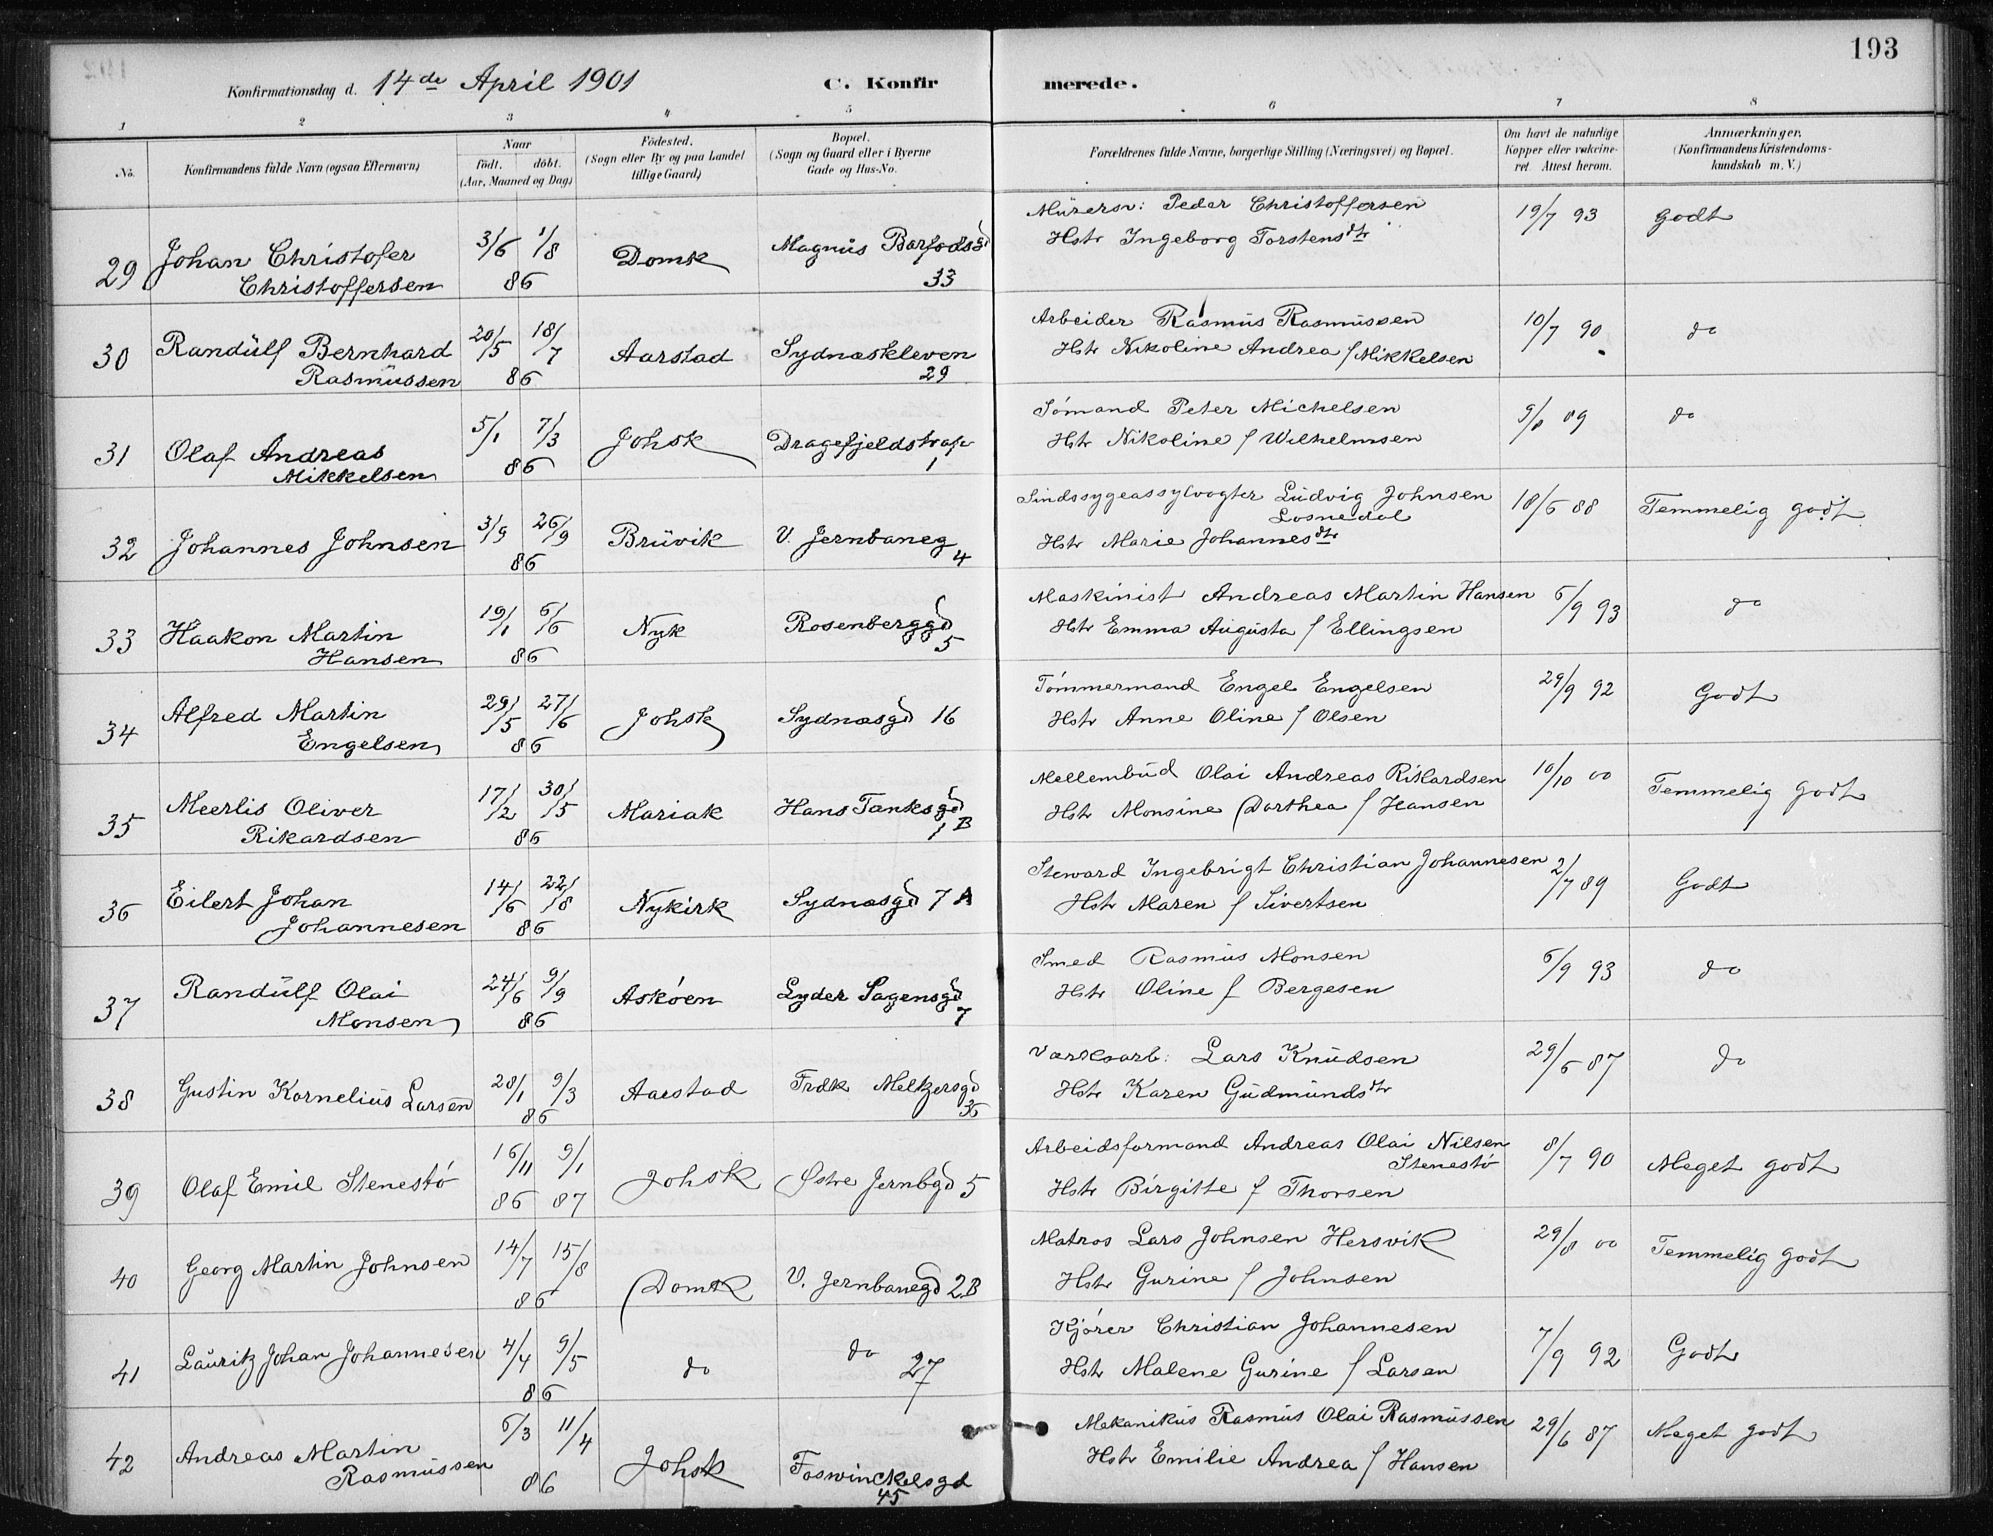 193
Konfirmationsdag d. 14de April 1901 C. Konfirmerede.
1 2 3 4 5 6 7 8
No. Konfirmandens fulde Navn (ogsaa Efternavn) Naar født. døbt. (Aar, Maaned og Dag) Fødested. (Sogn eller By og paa Landet tillige Gaard) Bopæl. (Sogn og Gaard eller i Byerne Gade og Hus-No. Forældrenes fulde Navne, borgerlige Stilling (Næringsvei) og Bopæl. Om havt de naturlige Kopper eller vakcineret. Attest herom. Anmærkninger. (Konfirmandens Kristendomskundskab m. V.)
29 Johan Christofer Christoffersen 3/6 1/8 86 Domk Magnus Barfodsgd 33 Murersv: Peder Christoffersen
Hstr Ingeborg Torstensdtr 19/7 93 godt
30 Randulf Bernhard Rasmussen 20/5 18/7 86 Aarstad Sydnæskleven 29 Arbeider Rasmus Rasmussen
Hstr Nikoline Andrea f Mikkelsen 10/7 90 do
31 Olaf Andreas Mikkelsen 5/1 7/3 86 Johsk Dragefjeldstrap 1 Sømand Peter Michelsen
Hstr Nikoline f Wilhelmsen 9/8 89 do
32 Johannes Johnsen 3/9 26/9 86 Bruvik V. Jernbaneg 4 Sindssygeassylvogter Ludvig Johnsen Losnedal
Hstr Marie Johannesdtr 18/6 88 Temmelig godt
33 Haakon Martin Hansen 19/1 6/6 86 Nyk Rosenberggd 5 Maskinist Andreas Martin Hansen
Hstr Emma Augusta f Ellingsen 6/9 93 do
34 Alfred Martin Engelsen 29/5 27/6 86 Johsk Sydnæsgd 16 Tømmermand Engel Engelsen
Hstr Anne Oline f Olsen 29/9 92 Godt
35 Meerlis Oliver Rikardsen 17/2 30/5 86 Mariak Hans Tanksgd 1 B Mellembud Olai Andreas Rikardsen
Hstr Monsine Dorthea f Hansen 10/10 00 Temmelig godt
36 Eilert Johan Johannesen 14/6 22/8 86 Nykirk Sydnæsgd 7 A Steward Ingebrigt Christian Johannesen
Hstr Maren f Sivertsen 2/7 89 Godt
37 Randulf Olai Monsen 24/6 9/9 86 Askøen Lyder Sagensgd 7 Smed Rasmus Monsen
Hstr Oline f Bergesen 6/9 93 do
38 Gustin Kornelius Larsen 28/1 9/3 86 Aarstad Frdk Meltzersgd 36 Værksarb: Lars Knudsen
Hstr Karen Gudmundsdtr 29/6 87 do
39 Olaf Emil Stenestø 16/11 86 9/1 87 Johsk Østre Jernbgd 5 Arbeidsformand Andreas Olai Nilsen Stenestø
Hstr Birgitte f Thorsen 8/7 90 Meget godt
40 Georg Martin Johnsen 14/7 15/8 86 Domk V. Jernbanegd 2B Matros Lars Johnsen Hersvik
Hstr Gurine f Johnsen 29/8 00 Temmelig godt
41 Lauritz Johan Johannesen 4/4 9/5 86 do do 27 Kjører Christian Johannesen
Hstr Malene Gurine f Larsen 7/9 92 Godt
42 Andreas Martin Rasmussen 6/3 11/4 86 Johsk Foswinckelsgd 45 Mekanikus Rasmus Olai Rasmussen
Hstr Emilie Andrea f Hansen 29/6 87 Meget godt